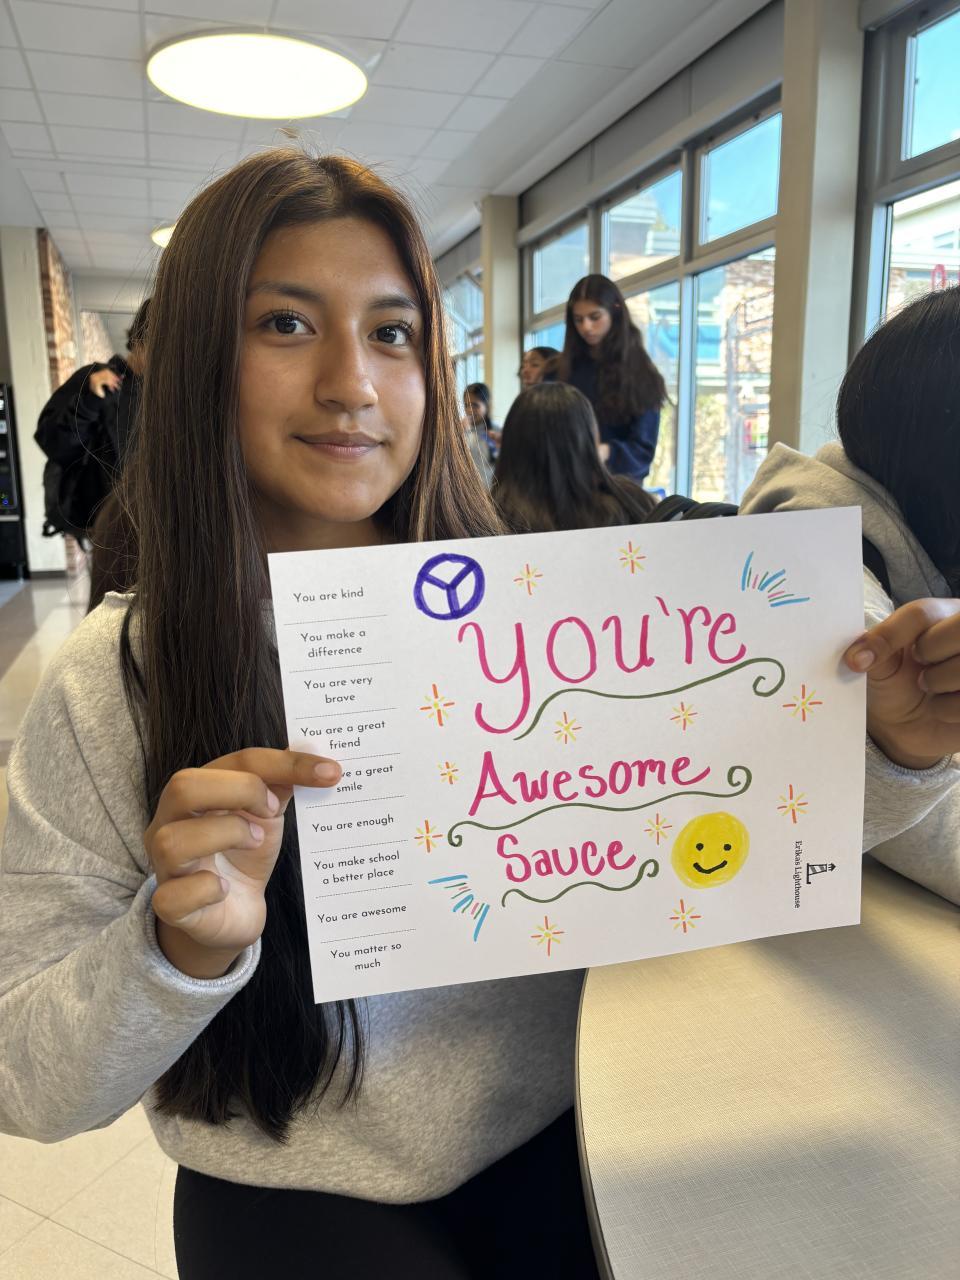 You are kind
You make a
difference
You are very
brave
You are a great
friend
ve a great
smile
You are enough
You make school
a better place
You are awesome
You matter so
much
You're
Awesome
Sauce
Erika's Lighthouse